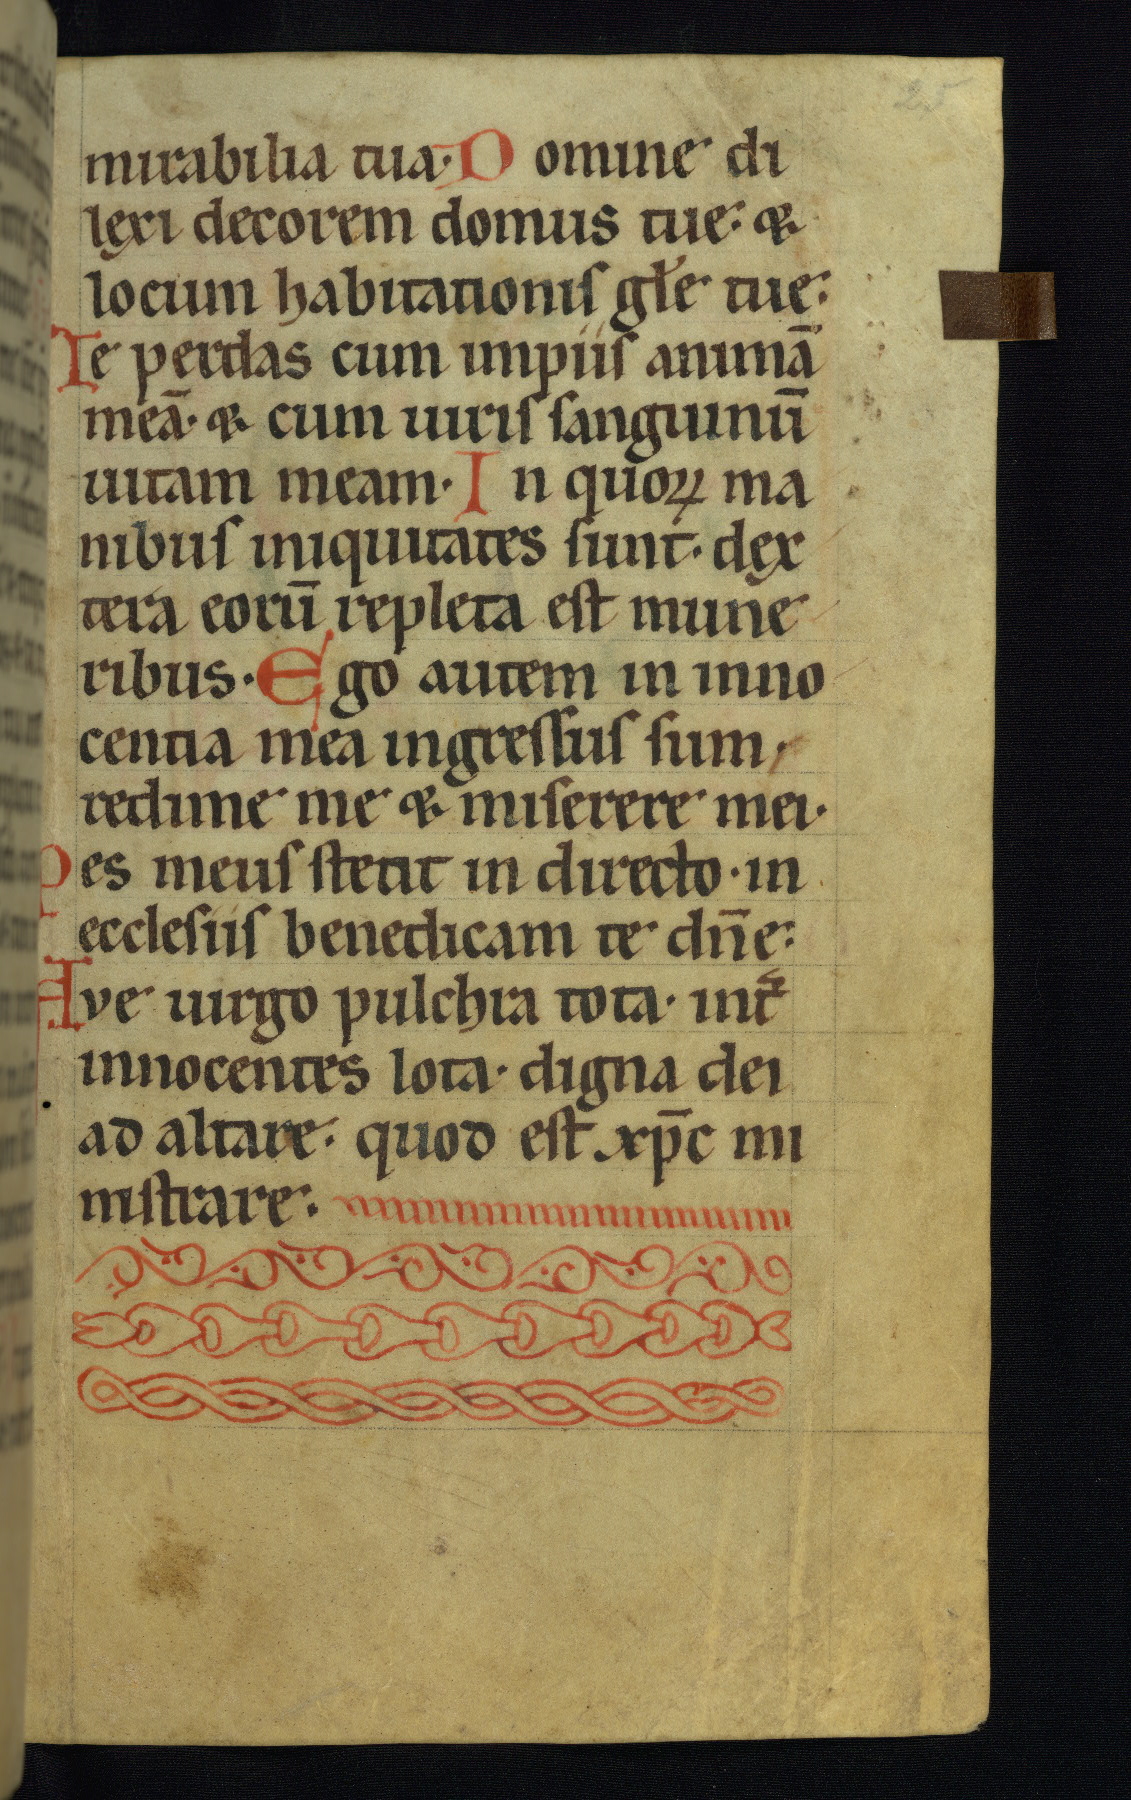 25
mirabilia tua· D omine di
lexi decorem domus tue· &
locum habitationis gl̅e tue:
Ie perdas cum impiis animā
meā· & cum uiris sanguinū
uitam meam· I n quoꝝ ma
nibus iniquitates sunt· dex
tera eorū repleta est mune
ribus· Ego autem in inno
centia mea ingressus sum·
redime me & miserere mei·
Pes meus stetit in directo· in
ecclesiis benedicam te dn̅e:
Ave uirgo pulchra tota· int̅
innocentes lota· digna dei
ad altare· quod est xp̅c mi
nistrare·